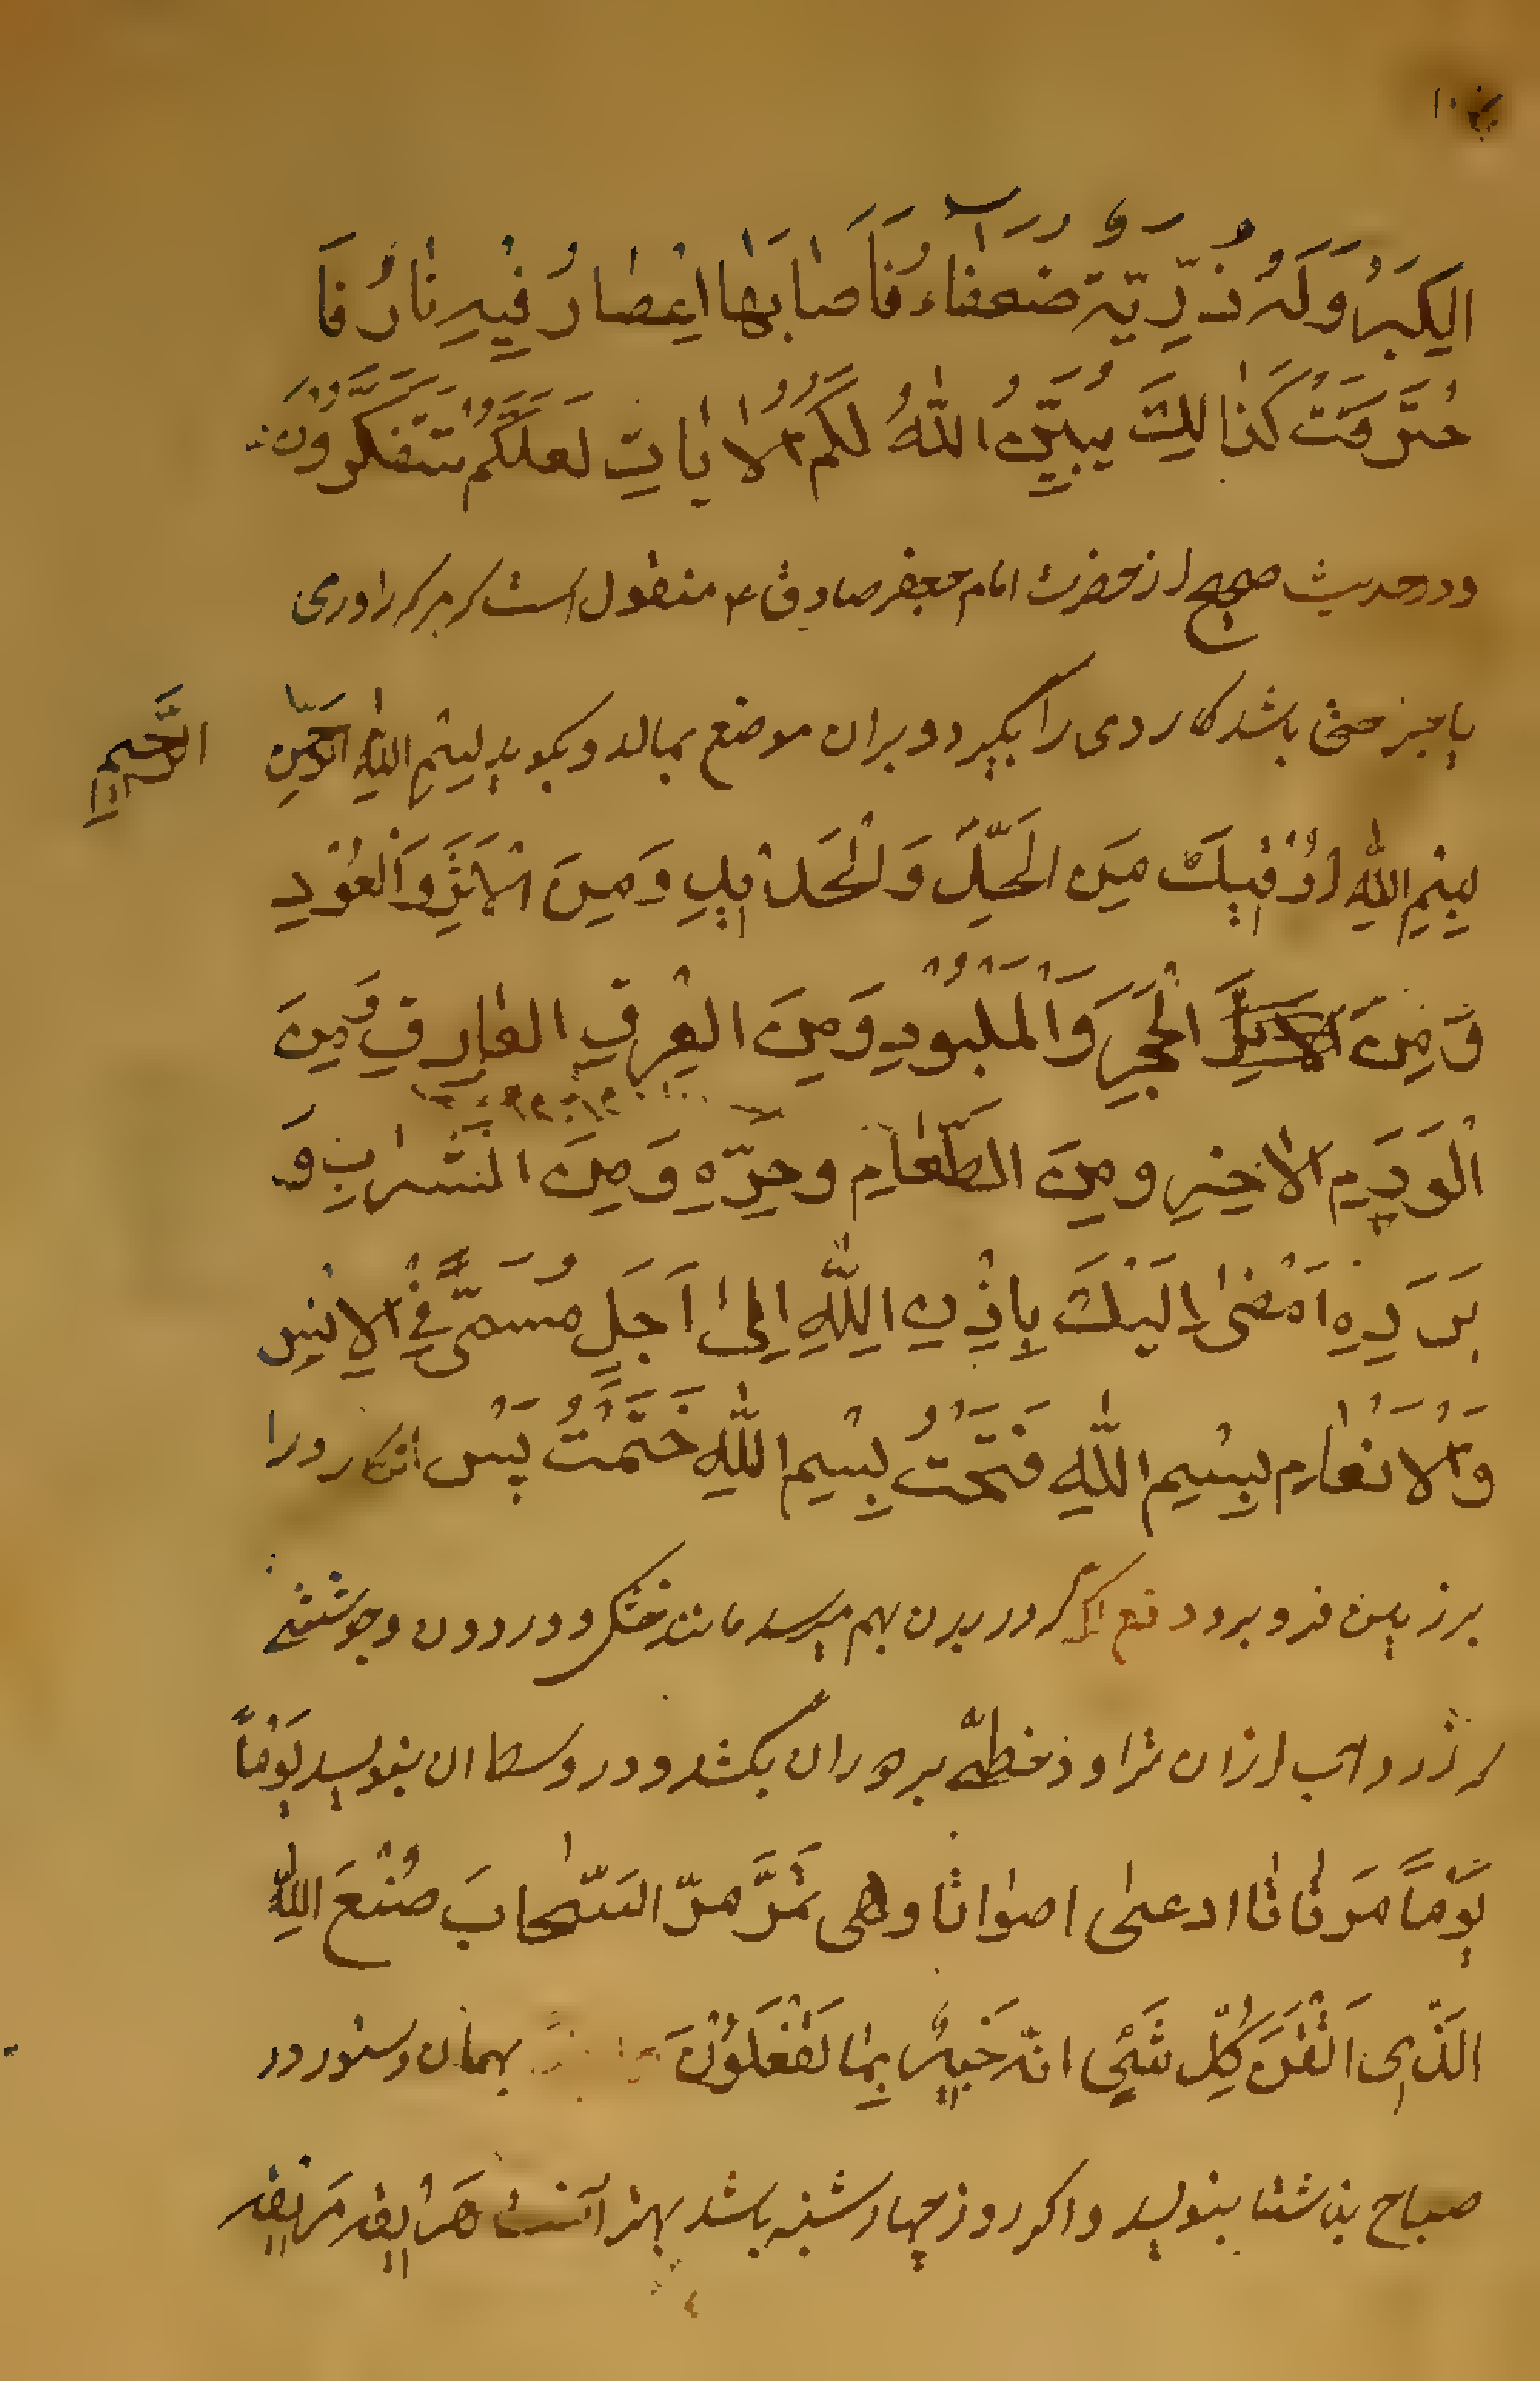 الْكِبَرُ وَلَهُ ذُرِّيَّةٌ ضُعَفَاءُ فَاَصَابَهَا اِعْصَارٌ فِيهِ نَارٌ فَا
حْتَرَقَتْ كَذَالِكَ يُبَيِّنُ اللّٰهُ لَكُمُ الْاٰيَاتِ لَعَلَّكُمْ تَتَفَكَّرُونَ
ودر حدیث صحیح از حضرت امام جعفر صادق ع منقول است که هر که را وری
یا جیز حتی باشد کاردی را بکیرد و بران موضع بمالد و بکوید بِسْمِ اللّٰهِ الرَّحْمٰنِ الرَّحِيمِ
بِسْمِ اللّٰهِ اَرْقِيكَ مِنَ الْحَدِّ وَالْحَدِيدِ وَمِنَ الْاَثَرِ وَالْعُوْدِ
وَمِنَ الْحَجَرِ وَالْمَلْبُوْدِ وَمِنَ الْعِرْقِ الْعَارِقِ وَمِنَ
الْوَرَمِ الْاٰخِرِ وَمِنَ الطَّعَامِ وَحِرِّهِ وَمِنَ الشَّرَابِ وَ
بَرَدِهِ اَمْضٰى اِلَيْكَ بِاِذْنِ اللّٰهِ اِلٰى اَجَلٍ مُسَمًّى فِى الْاِنْسِ
وَالْاَنْعَامِ بِسْمِ اللّٰهِ فَتَحْتُ بِسْمِ اللّٰهِ خَتَمْتُ پس انکارد را
بر زمین فرو برد دفع اکر که در بدن بهم میرسد مانند خشک و در دون وجوششی
که زرد اب ازان تراود خطی بر دور ان بکشد و در وسط ان بنویسد يَوْمًا
يَوْمًا مَرَقَاقَا ادعى اصواتا وهى تَمُرُّ مرّ السَّحَابَ صُنْعَ اللّٰهِ
الَّذِى اَتْقَنَ كُلِّ شَيْئٍ انه خَبِيرٌ بِمَا تَفْعَلُوْنَ بهمان دستور در
صباح ناشتا بنویسد واکر روز چهارشنبه باشد بهتر است